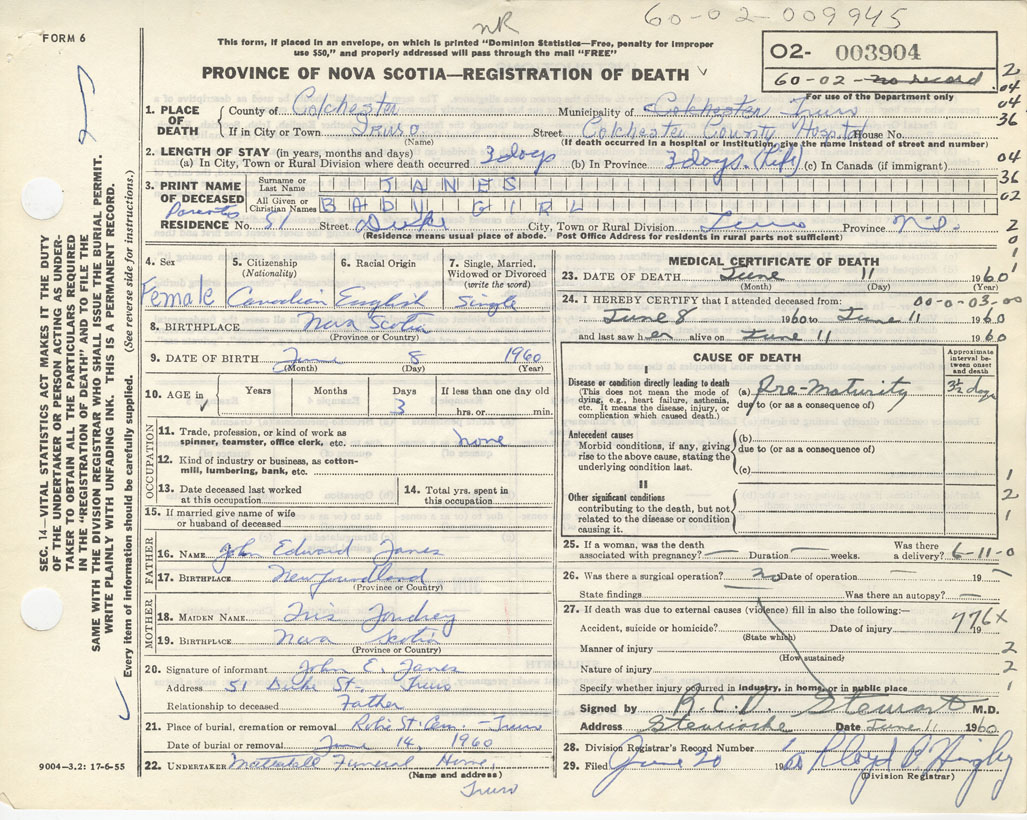 NR
60-02-009945
FORM 6
This form, if placed in an envelope, on which is printed "Dominion Statistics—Free, penalty for improper
use $50," and properly addressed will pass through the mail "FREE"
02- 003904
60-02-no record
For use of the Department only
PROVINCE OF NOVA SCOTIA—REGISTRATION OF DEATH
1. PLACE OF DEATH
County of Colchester
Municipality of Colchester Truro
If in City or Town Truro
(Name)
Street Colchester County Hospital House No.
(If death occurred in a hospital or institution, give the name instead of street and number)
2. LENGTH OF STAY (in years, months and days)
(a) In City, Town or Rural Division where death occurred 3 days (b) In Province 3 days. (Life) (c) In Canada (if immigrant)
3. PRINT NAME OF DECEASED
Surname or Last Name JANES
All Given or Christian Names BABY GIRL
Parents
RESIDENCE No. 51 Street Duke City, Town or Rural Division Truro Province N.S.
(Residence means usual place of abode. Post Office Address for residents in rural parts not sufficient)
2
04
04
36
04
36
02
2
0
1
0
1
4. Sex
Female
5. Citizenship
(Nationality)
Canadian
6. Racial Origin
English
7. Single, Married,
Widowed or Divorced
(write the word)
Single
8. BIRTHPLACE Nova Scotia
(Province or Country)
9. DATE OF BIRTH June 8 1960
(Month) (Day) (Year)
10. AGE in
Years
Months
Days
3
If less than one day old
hrs. or min.
OCCUPATION
11. Trade, profession, or kind of work as
spinner, teamster, office clerk, etc. none
12. Kind of industry or business, as cotton-
mill, lumbering, bank, etc.
13. Date deceased last worked
at this occupation
14. Total yrs. spent in
this occupation
15. If married give name of wife
or husband of deceased
FATHER
16. NAME John Edward Janes
17. BIRTHPLACE Newfoundland
(Province or Country)
MOTHER
18. MAIDEN NAME Iris Joudrey
19. BIRTHPLACE Nova Scotia
(Province or Country)
20. Signature of informant John E. Janes
Address 51 Duke St. Truro
Relationship to deceased Father
21. Place of burial, cremation or removal Robie St. Cem. - Truro
Date of burial or removal June 14, 1960
22. UNDERTAKER Funeral Home,
(Name and address)
Truro
MEDICAL CERTIFICATE OF DEATH
23. DATE OF DEATH June 11 1960
(Month) (Day) (Year)
24. I HEREBY CERTIFY that I attended deceased from: 00-0-03-00
June 8 1960 to June 11 1960
and last saw her alive on June 11 1960
CAUSE OF DEATH
Approximate
interval be-
tween onset
and death
I
Disease or condition directly leading to death
(This does not mean the mode of
dying, e.g., heart failure, asthenia,
etc. It means the disease, injury, or
complication which caused death.)
(a) Pre-maturity
due to (or as a consequence of)
3½ days
Antecedent causes
Morbid conditions, if any, giving
rise to the above cause, stating the
underlying condition last.
(b)
due to (or as a consequence of)
(c)
II
Other significant conditions
contributing to the death, but not
related to the disease or condition
causing it.
1
2
1
25. If a woman, was the death
associated with pregnancy? — Duration — weeks.
Was there
a delivery? 6-11-0
26. Was there a surgical operation? no Date of operation — 19 —
State findings Was there an autopsy? —
27. If death was due to external causes (violence) fill in also the following:—
Accident, suicide or homicide? Date of injury 19
776X
(State which)
Manner of injury 2
(How sustained)
Nature of injury 2
Specify whether injury occurred in industry, in home, or in public place 1
Signed by R.C.D. Stewart M.D.
Address Stewiacke Date June 11 1960
28. Division Registrar's Record Number
29. Filed June 20 1960
(Division Registrar)
SEC. 14—VITAL STATISTICS ACT MAKES IT THE DUTY
OF THE UNDERTAKER OR PERSON ACTING AS UNDER-
TAKER TO OBTAIN ALL THE PARTICULARS REQUIRED
IN THE "REGISTRATION OF DEATH" AND TO FILE THE
SAME WITH THE DIVISION REGISTRAR WHO SHALL ISSUE THE BURIAL PERMIT.
WRITE PLAINLY WITH UNFADING INK. THIS IS A PERMANENT RECORD.
Every item of information should be carefully supplied. (See reverse side for instructions.)
9004—3.2: 17-6-55